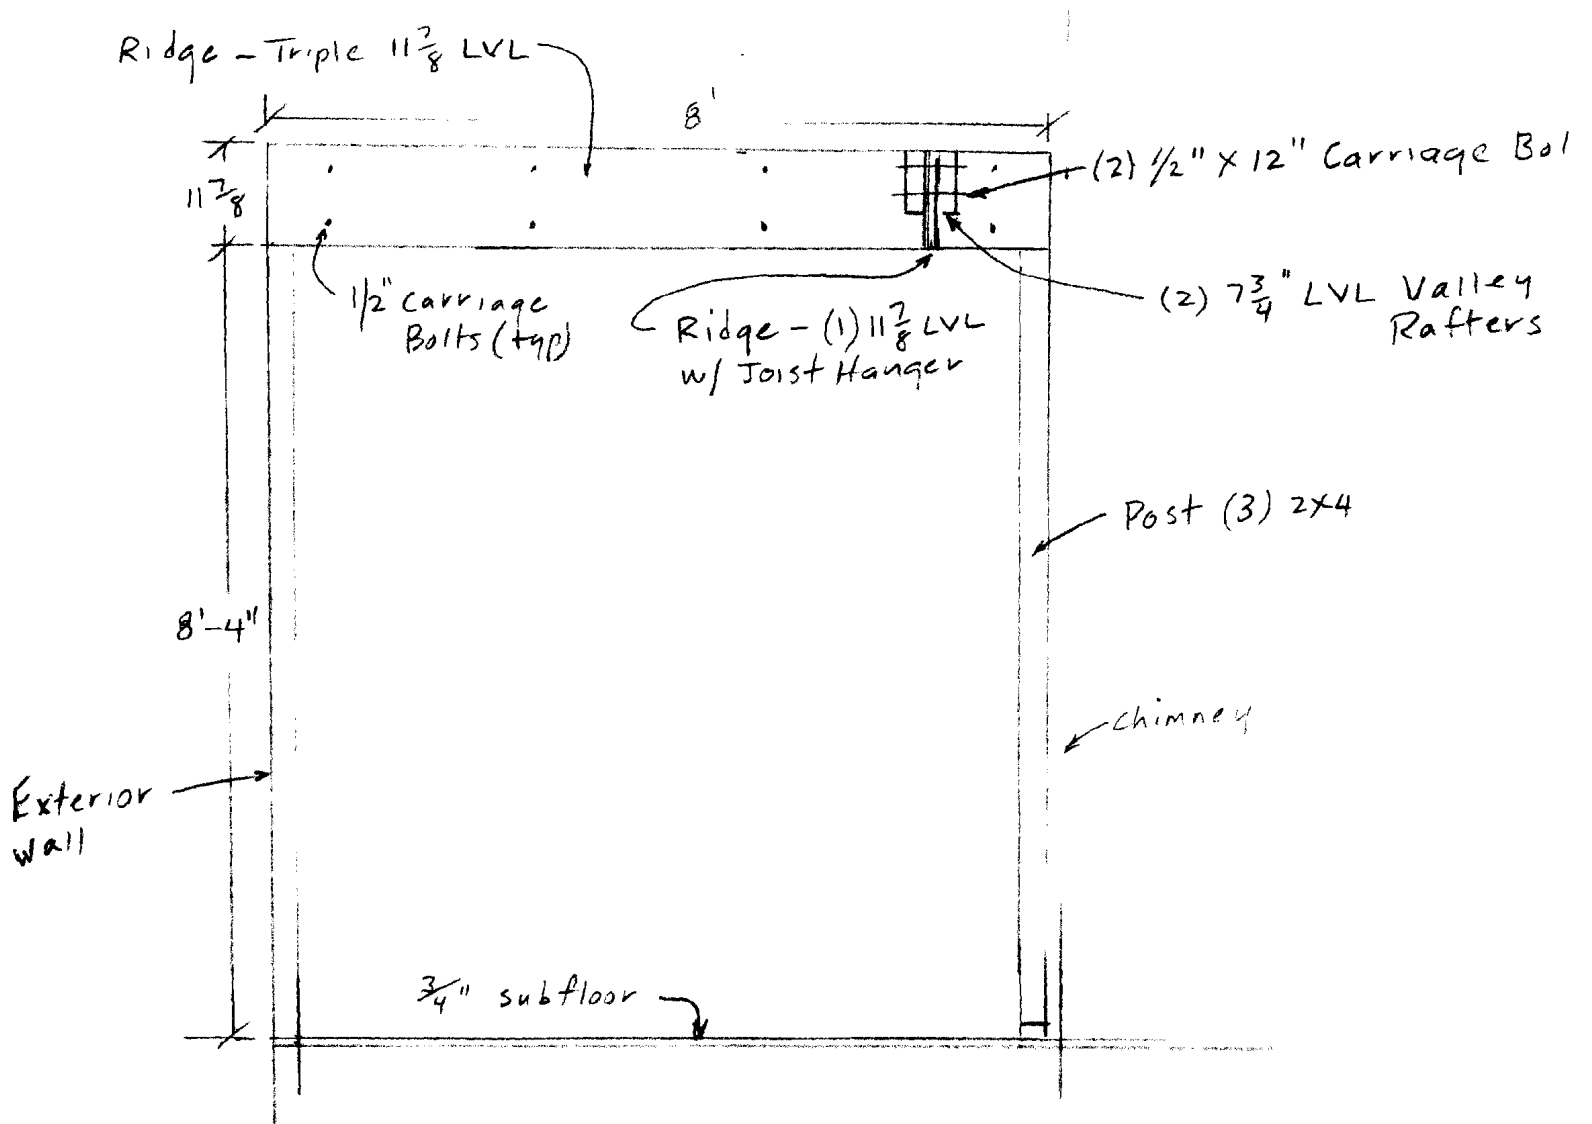 Ridge - Triple 11 7/8 LVL
8'
11 7/8
(2) 1/2" X 12" Carriage Bol
1/2" Carriage
Bolts (typ)
Ridge - (1) 11 7/8 LVL
w/ Joist Hanger
(2) 7 3/4" LVL Valley
Rafters
Post (3) 2x4
8'-4"
chimney
Exterior
wall
3/4" subfloor